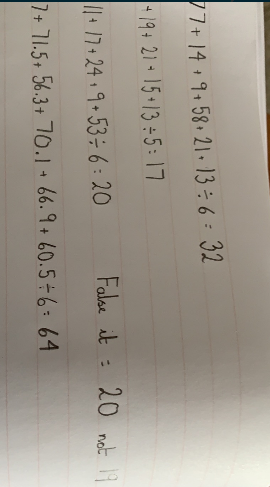 77 + 14 + 9 + 58 + 21 + 13 ÷ 6 = 32
+ 19 + 21 + 15 + 13 ÷ 5 = 17
11 + 17 + 24 + 9 + 53 ÷ 6 = 20 False it = 20 not 19
7 + 71.5 + 56.3 + 70.1 + 66.9 + 60.5 ÷ 6 = 64